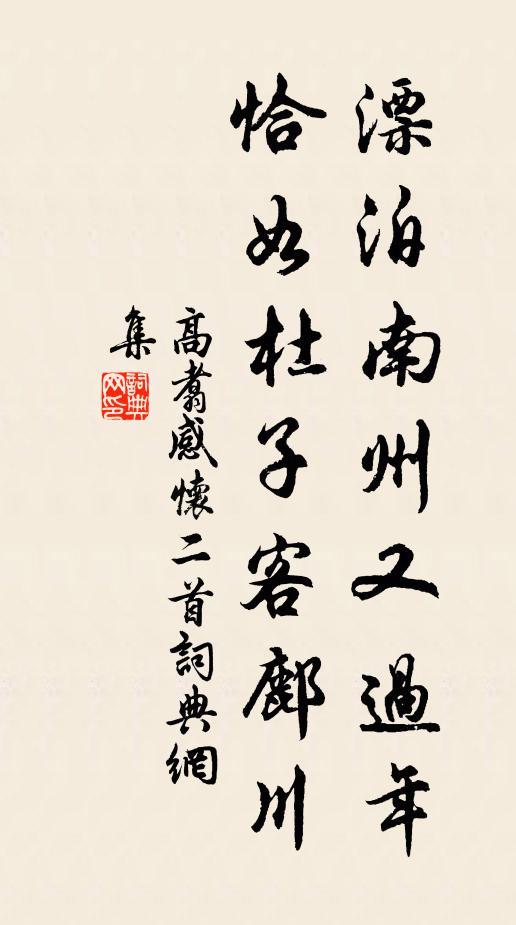 漂泊南州又過年
恰如杜子客鄜川
高翥感懷二首詞典網
集
詞典网印